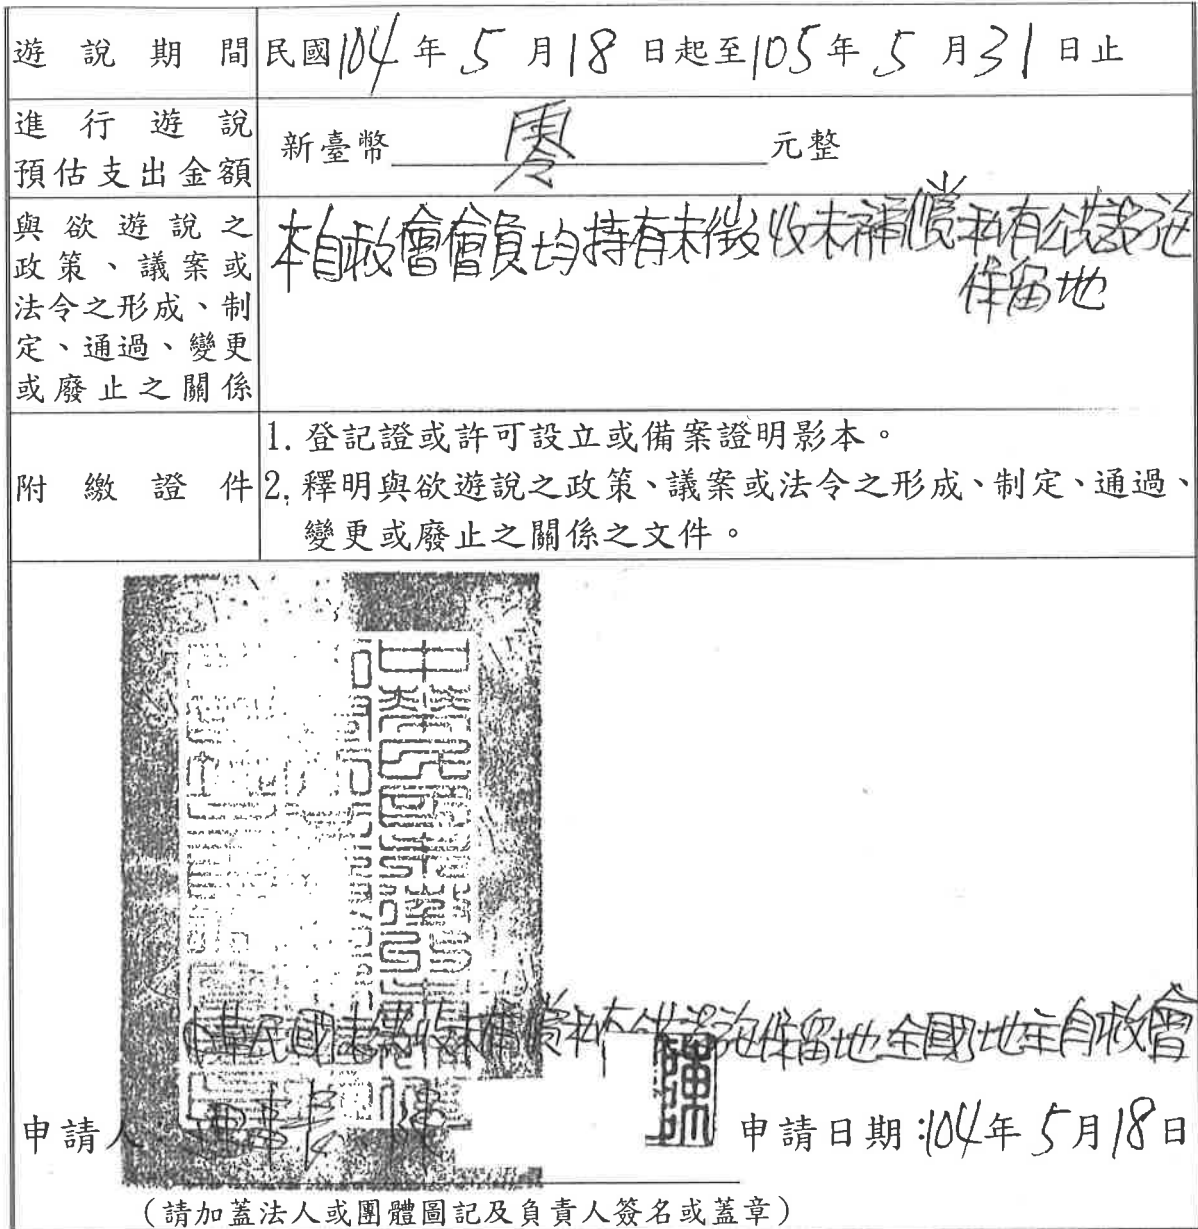 遊說期間 民國104年5月18日起至105年5月31日止
進行遊說
預估支出金額
新臺幣 零 元整
與欲遊說之
政策、議案或
法令之形成、制
定、通過、變更
或廢止之關係
本自救會會員均持有未徵收未補償私有公共設施
保留地
附繳證件
1. 登記證或許可設立或備案證明影本。
2. 釋明與欲遊說之政策、議案或法令之形成、制定、通過、
變更或廢止之關係之文件。
中華民國未徵收未補償私有公共設施保留地全國地主自救會
申請人 理事長 陳
陳
申請日期:104年5月18日
(請加蓋法人或團體圖記及負責人簽名或蓋章)